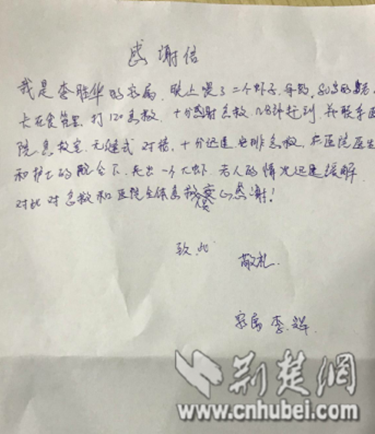 感谢信
我是李胜华的家属。晚上煨了二个虾子
卡在食管里 打120急救,十分感谢急救 赶到
院急救室 无缝式对接,十分迅速安排急救,在医院医生
和护士的配合下,夹出一个大虾 老人的情况迅速缓解
对此对急救和医院全体 衷心感谢!
致此
敬礼
家属 李
荆楚網
www.cnhubei.com